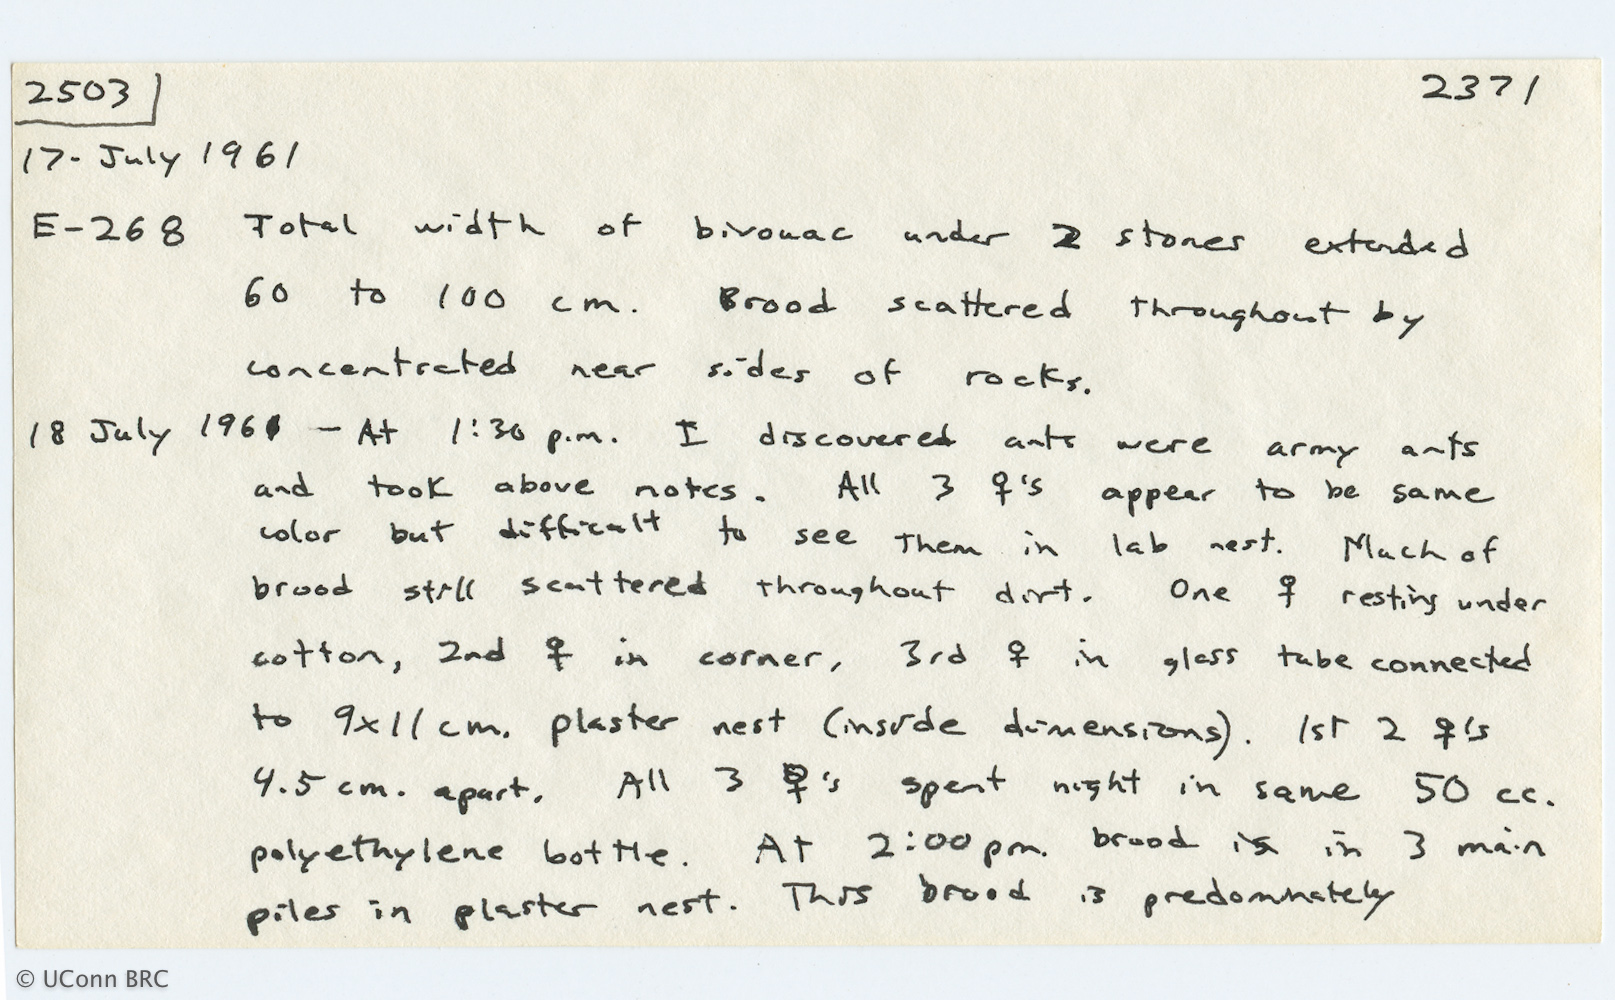 2503 2371
17- July 1961
E-268 Total width of bivouac under 2 stones extended
60 to 100 cm. Brood scattered throughout by
concentrated near sides of rocks.
18 July 1961 - At 1:30 p.m. I discovered ants were army ants
and took above notes. All 3 ♀'s appear to be same
color but difficult to see them in lab nest. Much of
brood still scattered throughout dirt. One ♀ resting under
cotton, 2nd ♀ in corner, 3rd ♀ in glass tube connected
to 9x11 cm. plaster nest (inside dimensions). 1st 2 ♀'s
4.5 cm. apart. All 3 ♀'s spent night in same 50 cc.
polyethylene bottle. At 2:00 pm. brood is in 3 main
piles in plaster nest. This brood is predominately
© UConn BRC